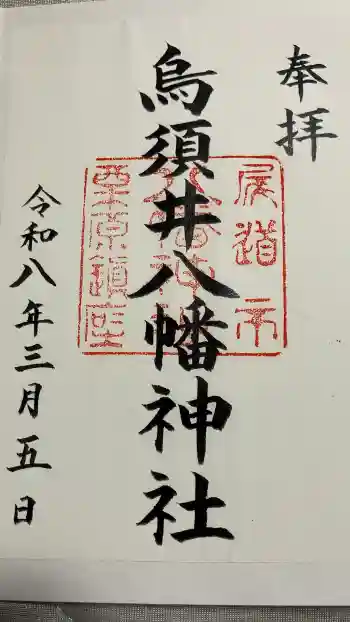 奉拝
烏須井八幡神社
尾道市
栗原鎮座
令和八年三月五日